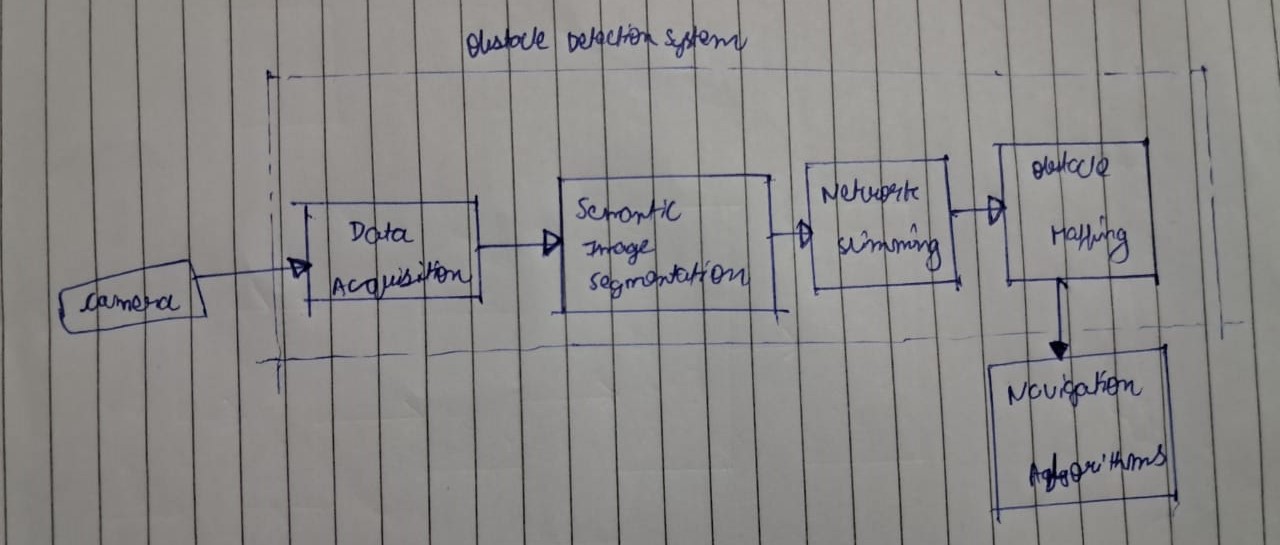 Obstacle Detection System
Camera
Data
Acquisition
Semantic
Image
segmentation
Network
slimming
Obstacle
Mapping
Navigation
Algorithms